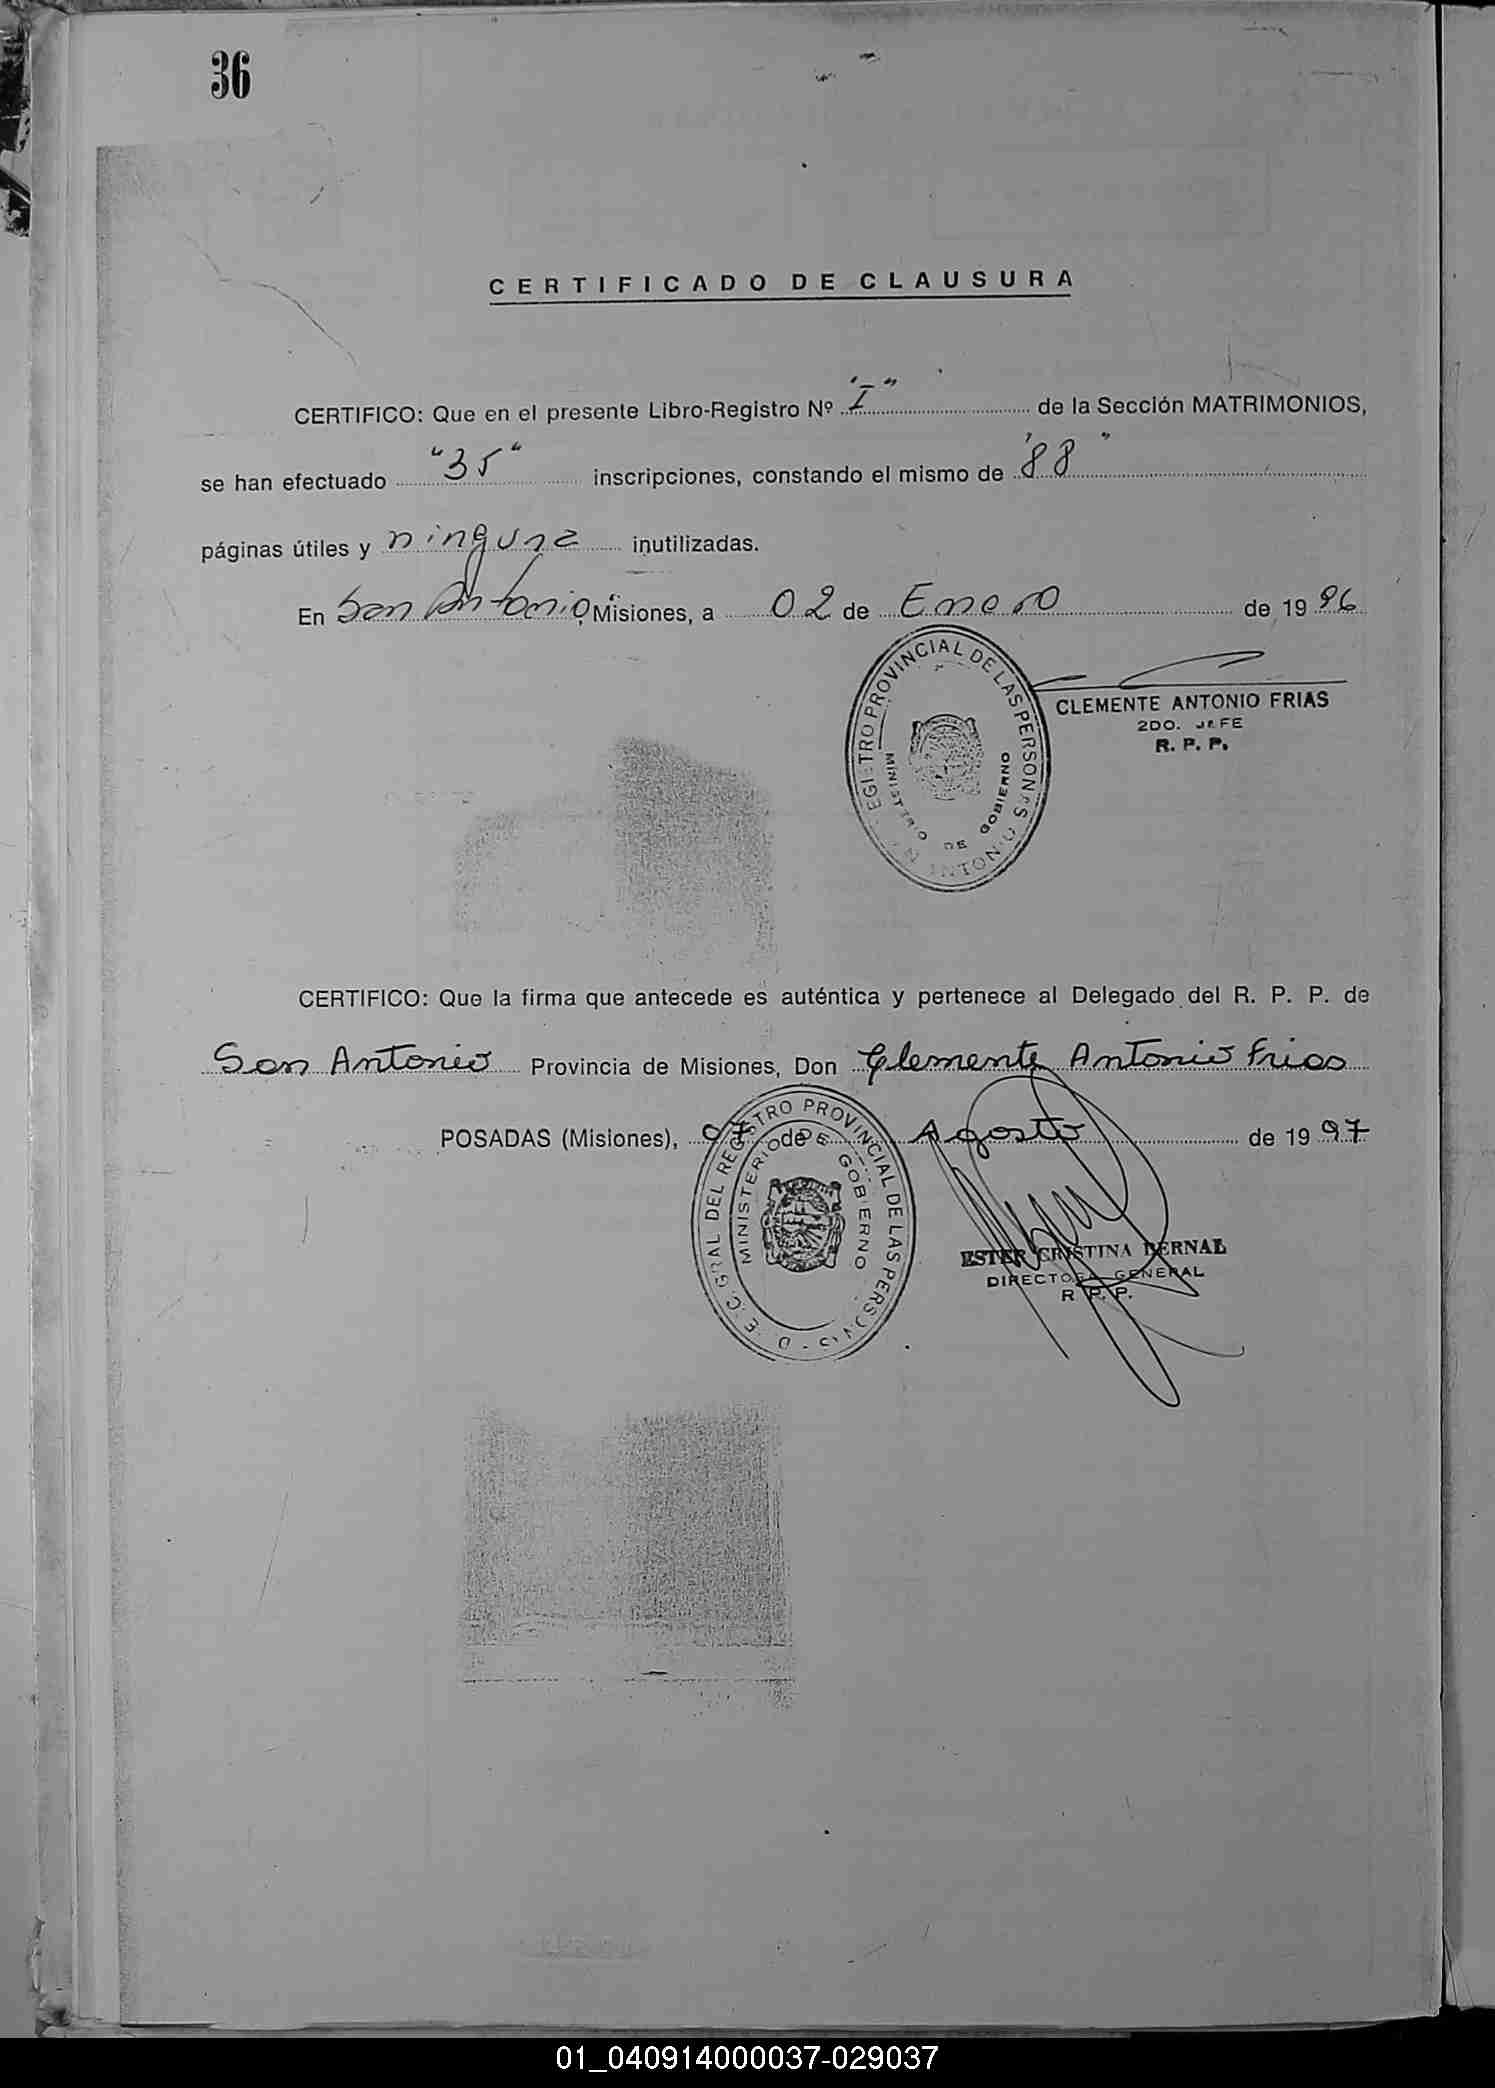 36
CERTIFICADO DE CLAUSURA
CERTIFICO: Que en el presente Libro-Registro Nº "I" de la Sección MATRIMONIOS,
se han efectuado "35" inscripciones, constando el mismo de "88"
páginas útiles y ninguna inutilizadas.
En San Antonio, Misiones, a 02 de Enero de 1996
CLEMENTE ANTONIO FRIAS
2DO. JEFE
R. P. P.
REGISTRO PROVINCIAL DE LAS PERSONAS
MINISTERIO DE GOBIERNO
SAN ANTONIO
CERTIFICO: Que la firma que antecede es auténtica y pertenece al Delegado del R. P. P. de
San Antonio Provincia de Misiones, Don Clemente Antonio Frias
POSADAS (Misiones), 07 de Agosto de 1997
GRAL DEL REGISTRO PROVINCIAL DE LAS PERSONAS
MINISTERIO DE GOBIERNO
ESTER CRISTINA BERNAL
DIRECTORA GENERAL
R. P. P.
01_040914000037-029037